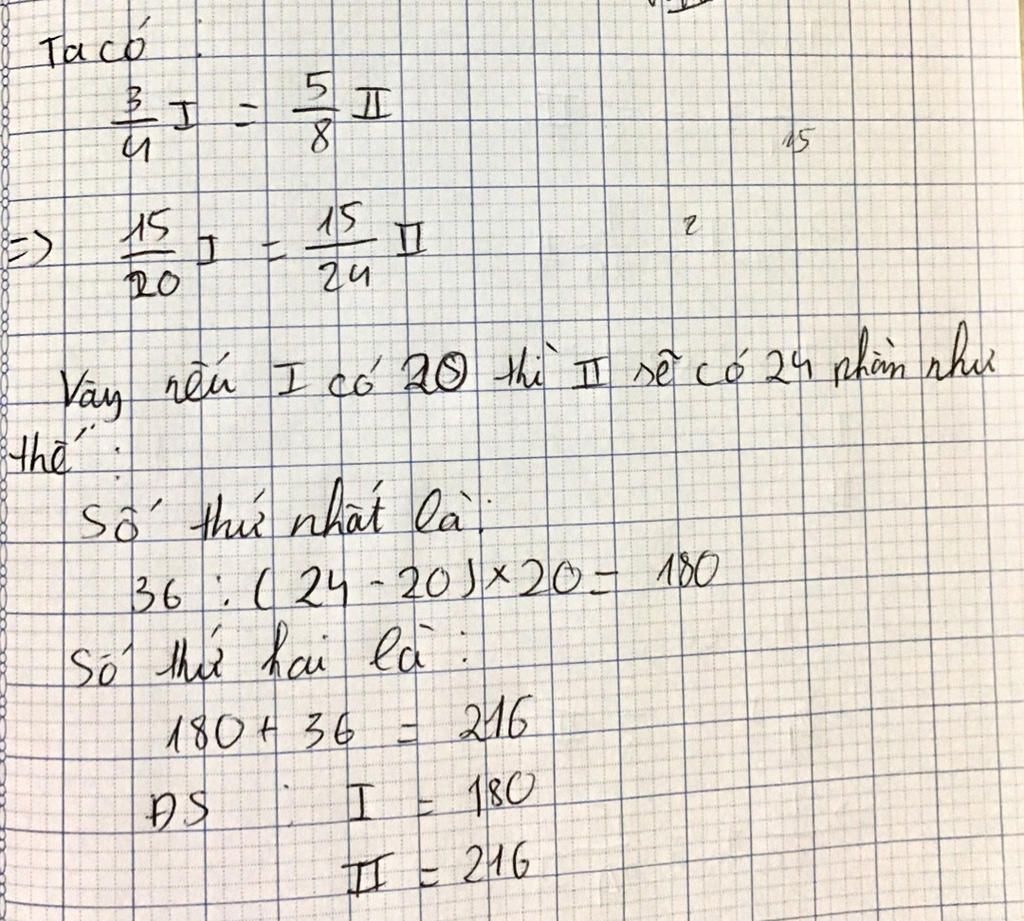 Ta có :
3/4 I = 5/8 II
15
=> 15/20 I = 15/24 II
2
Vậy nếu I có 20 thì II sẽ có 24 phần như
thế :
Số thứ nhất là :
36 : ( 24 - 20 ) × 20 = 180
Số thứ hai là :
180 + 36 = 216
ĐS : I = 180
II = 216